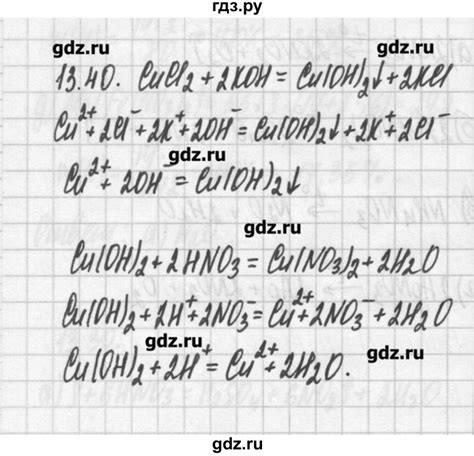 гдз.ру
gdz.ru gdz.ru
13.40. CuCl₂ + 2KOH = Cu(OH)₂↓ + 2KCl
Cu²⁺ + 2Cl⁻ + 2K⁺ + 2OH⁻ = Cu(OH)₂↓ + 2K⁺ + 2Cl⁻
gdz.ru
Cu²⁺ + 2OH⁻ = Cu(OH)₂↓
gdz.ru
Cu(OH)₂ + 2HNO₃ = Cu(NO₃)₂ + 2H₂O
gdz.ru gdz.ru
Cu(OH)₂ + 2H⁺ + 2NO₃⁻ = Cu²⁺ + 2NO₃⁻ + 2H₂O
gdz.ru
Cu(OH)₂ + 2H⁺ = Cu²⁺ + 2H₂O.
gdz.ru
gdz.ru